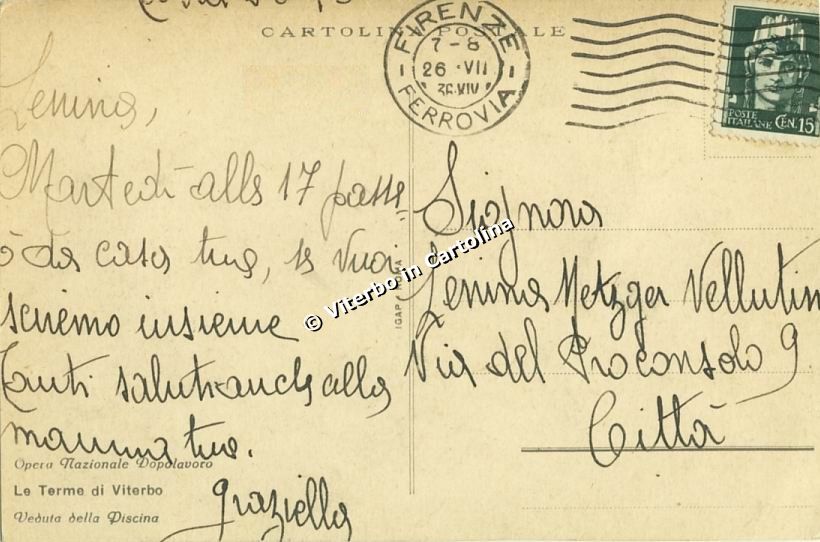 CARTOLINA POSTALE
FIRENZE
7-8
26 ·VII
36·XIV
FERROVIA
POSTE
ITALIANE CEN.15
Martedì alle 17 passe
ò da casa tua, se vuoi
insieme
Tanti saluti anche alla
mamma tua.
Graziella
Signora
Metzger Vellutini
Via del Proconsolo 9
Città
IGAP ROMA
© Viterbo in Cartolina
Opera Nazionale Dopolavoro
Le Terme di Viterbo
Veduta della Piscina